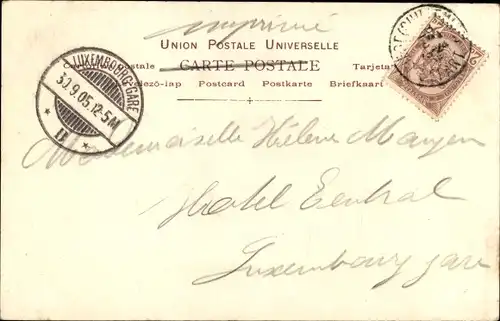 imprimé
UNION POSTALE UNIVERSELLE
CARTE POSTALE
Tarjeta
ező-lap Postcard Postkarte Briefkaart
LUXEMBOURG-GARE
30.9.05.12-5M
Mademoiselle Hélène Mangen
Hotel Central
Luxembourg gare